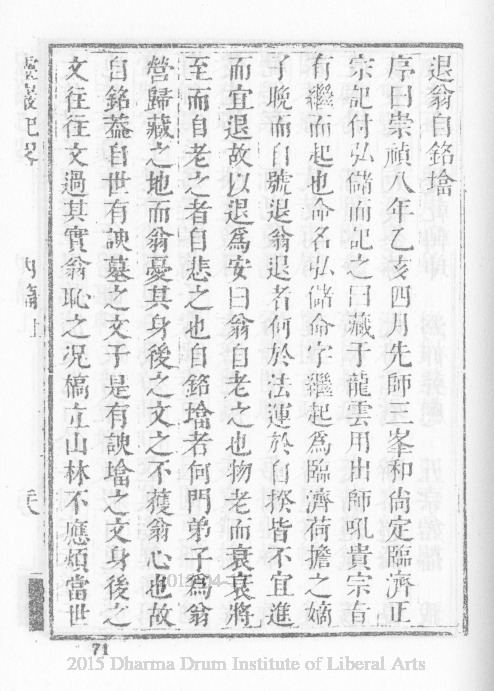 退翁自銘塔
序曰崇禎八年乙亥四月先師三峯和尚定臨濟正
宗記付弘儲而記之曰藏于龍雲用出師吼貴宗有
有繼而起也命名弘儲命字繼起爲臨濟荷擔之嫡
了晚而自號退翁退者何於法運於自揆皆不宜進
而宜退故以退爲安曰翁自老之也物老而衰衰將
至而自老之者自悲之也自銘塔者何門弟子爲翁
營歸藏之地而翁憂其身後之文之不獲翁心也故
自銘葢自世有諛墓之文于是有諛塔之文身後之
文往往文過其實翁恥之况槁立山林不應煩當世
靈巖記畧 內篇
71
2015 Dharma Drum Institute of Liberal Arts